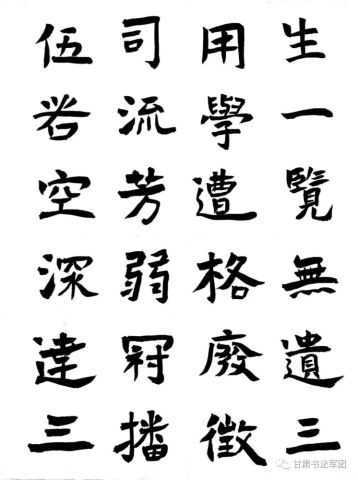 生一覽無遺三
用學遭格廢徵
司流芳弱冠播
伍空深達三
甘肃书法军团